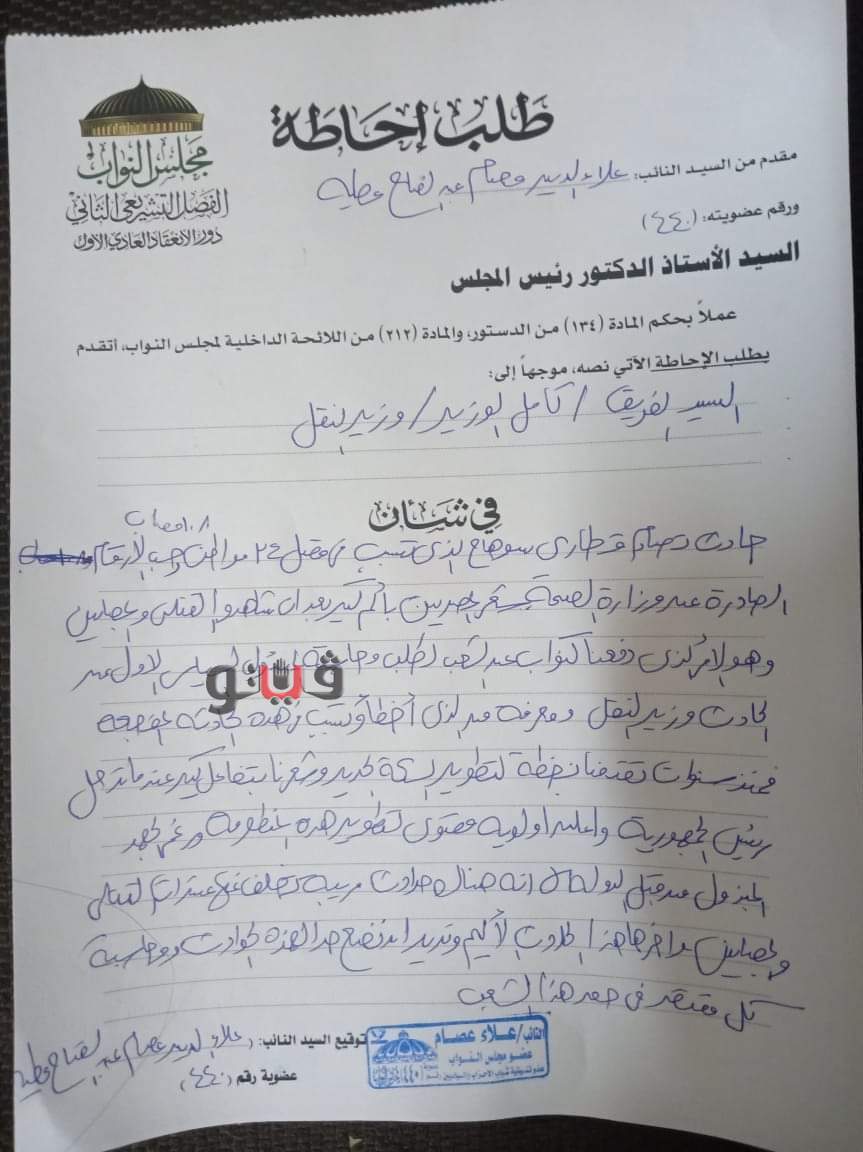 طلب إحاطة
مجلس النواب
الفصل التشريعى الثانى
دور الانعقاد العادى الأول
مقدم من السيد النائب: علاء الدين عصام عبد الفتاح عطية
ورقم عضويته: (٤٤٠)
السيد الأستاذ الدكتور رئيس المجلس
عملاً بحكم المادة (١٣٤) من الدستور، والمادة (٢١٢) من اللائحة الداخلية لمجلس النواب، أتقدم
بطلب الإحاطة الآتي نصه، موجهاً إلى:
السيد الفريق / كامل الوزير / وزير النقل
في شأن
حادث تصادم قطارى سوهاج الذى تسبب فى مقتل ٣٢ مواطن حسب الأرقام
الصادرة عن وزارة الصحة المصريين بألم كبير بعد ان شاهدوا القتلى والمصابين
وهو الامر الذى دفعنا كنواب عن الشعب لطلب الاول عن
الحادث وزير النقل ومعرفة من الذى أخطأ وتسبب فى هذه الحادثة المفجعة
فمنذ سنوات تقدمنا بخطة لتطوير السكة الحديد وشعرنا بتفاعل كبير عندما تدخل
رئيس الجمهورية واعلن اولوية قصوى لتطوير هذه المنظومة ورغم الجهد
المبذول من قبل الدولة الا انه هناك حوادث مريبة تخلف عنها عشرات القتلى
والمصابين واخرها هذا الحادث الأليم ونريد ان نضع حدا لهذه الحوادث ومحاسبة
كل مقصر فى حق هذا الشعب
توقيع السيد النائب: (علاء الدين عصام عبد الفتاح عطية
عضوية رقم (٤٤٠)
النائب/علاء عصام
عضو مجلس النواب
عضو تنسيقية شباب الأحزاب والسياسيين
ڤيتو